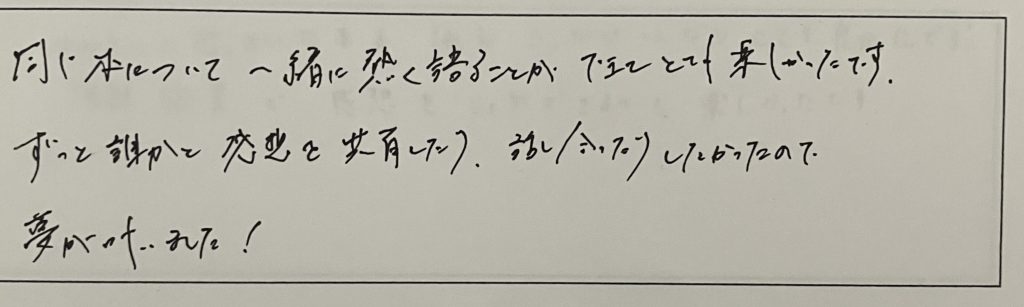 同じ本について一緒に熱く語ることができてとても楽しかったです。
ずっと誰かと感想を共有したり、話し合ったりしたかったので
夢が叶いました!